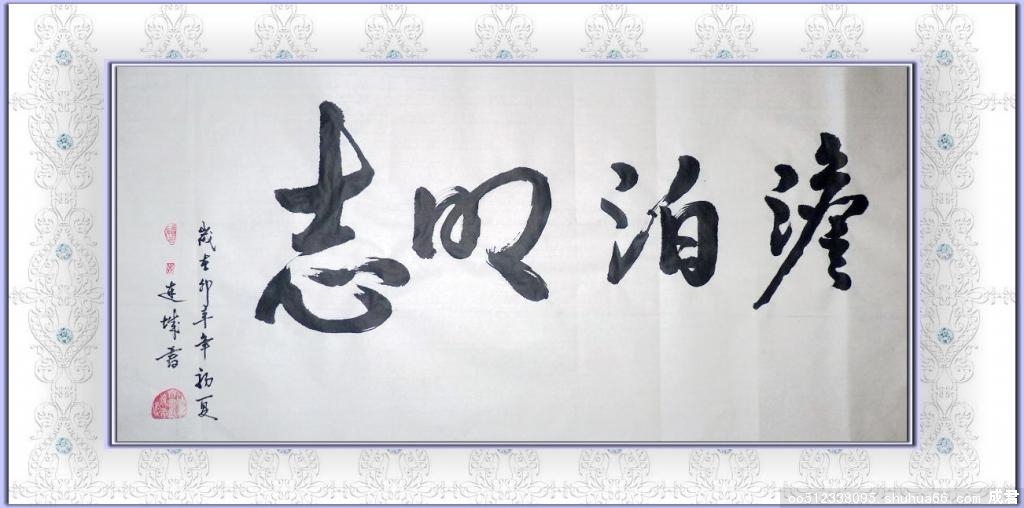 澹泊明志
歲在卯辛年初夏
連城書
oo512338095 shuhua66.com 成君